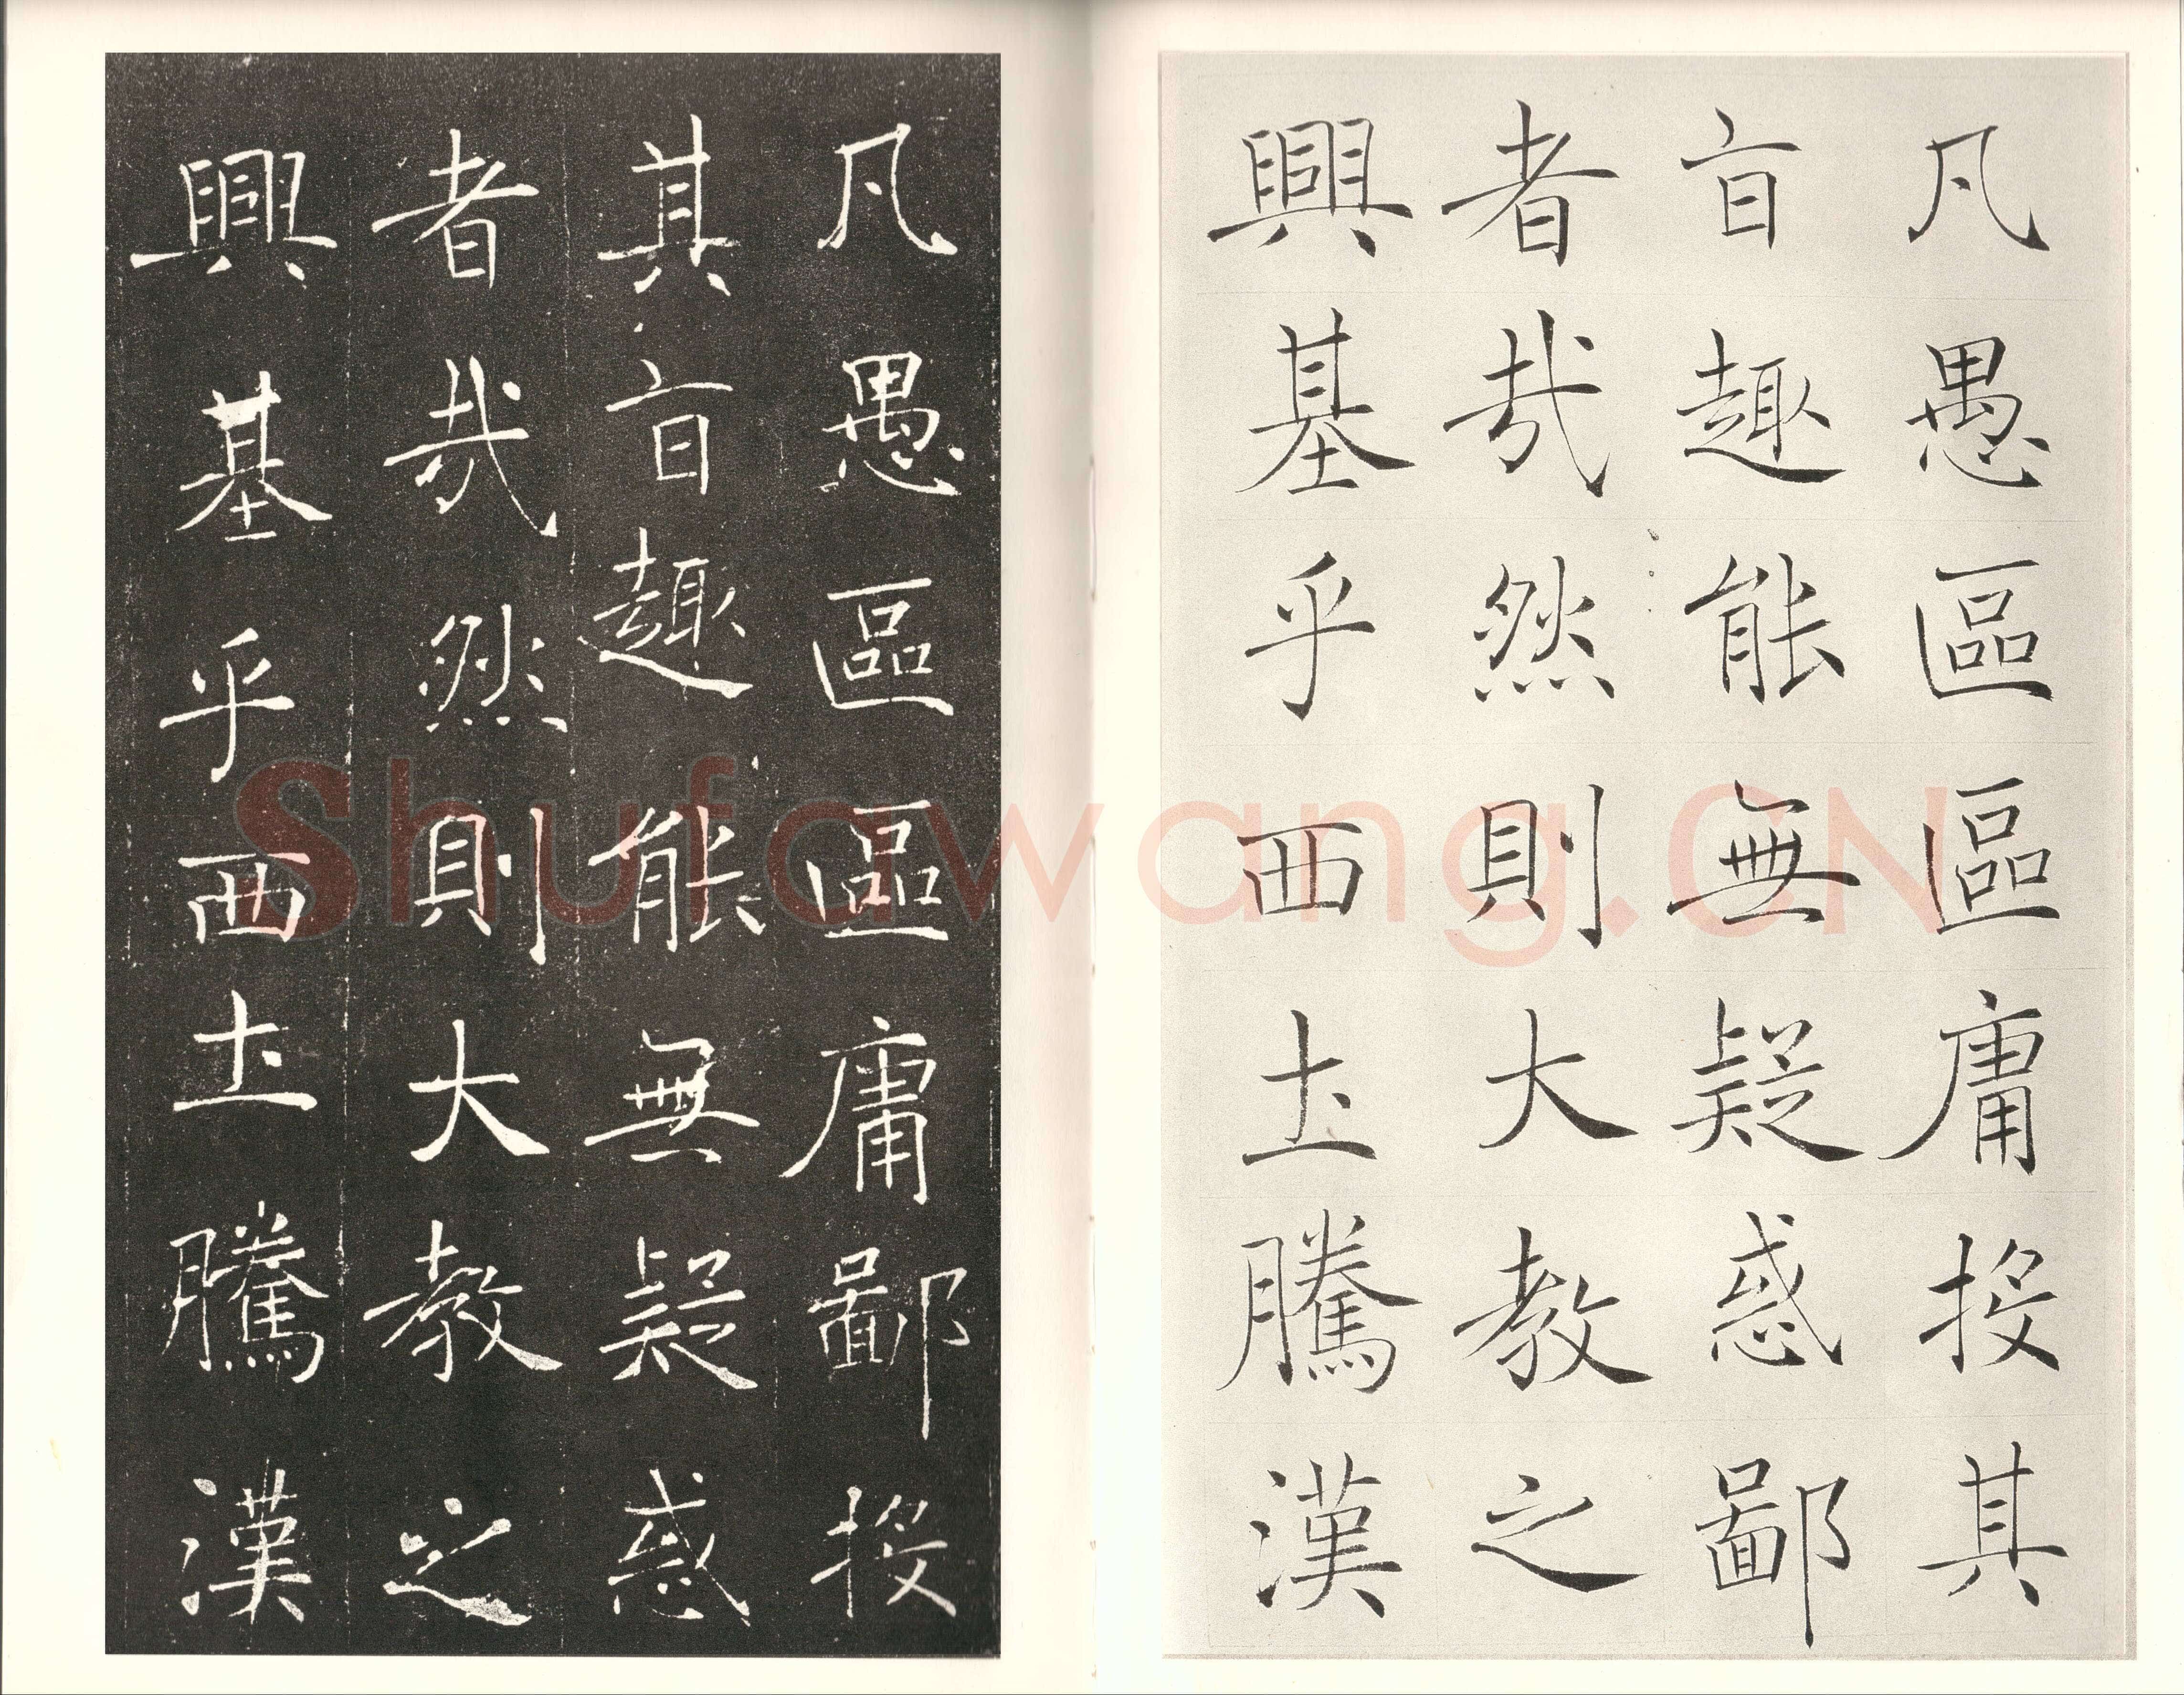 凡愚區區庸投其
旨趣能無疑惑鄙
者哉然則大教之
興基乎西土騰漢
凡愚區區庸鄙投
其旨趣能無疑惑
者哉然則大教之
興基乎西土騰漢
Shufawang.CN